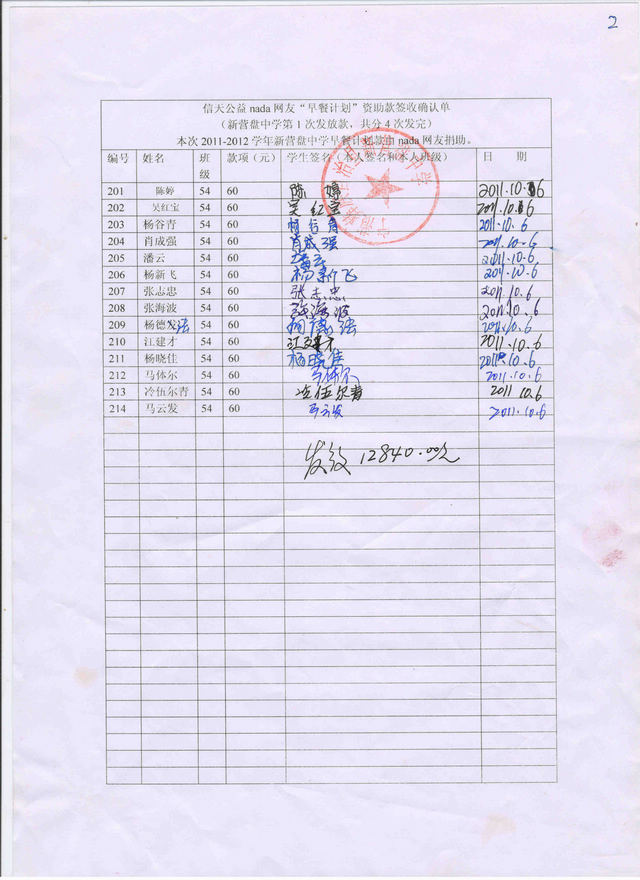 2
信天公益nada网友“早餐计划”资助款签收确认单
（新营盘中学第1次发放款，共分4次发完）
本次2011-2012学年新营盘中学早餐计划款由nada网友捐助。
编号 姓名 班级 款项（元） 学生签名（本人签名和本人班级） 日 期
201 陈婷 54 60 陈婷 2011.10.6
202 吴红宝 54 60 吴红宝 2011.10.6
203 杨谷青 54 60 杨谷青 2011.10.6
204 肖成强 54 60 肖成强 2011.10.6
205 潘云 54 60 潘云 2011.10.6
206 杨新飞 54 60 杨新飞 2011.10.6
207 张志忠 54 60 张志忠 2011.10.6
208 张海波 54 60 张海波 2011.10.6
209 杨德发法 54 60 杨德法 2011.10.6
210 江建才 54 60 江建才 2011.10.6
211 杨晓佳 54 60 杨晓佳 2011.10.6
212 马体尔 54 60 马体尔 2011.10.6
213 冷伍尔青 54 60 冷伍尔青 2011 10.6
214 马云发 54 60 马云发 2011.10.6
发放12840.00元